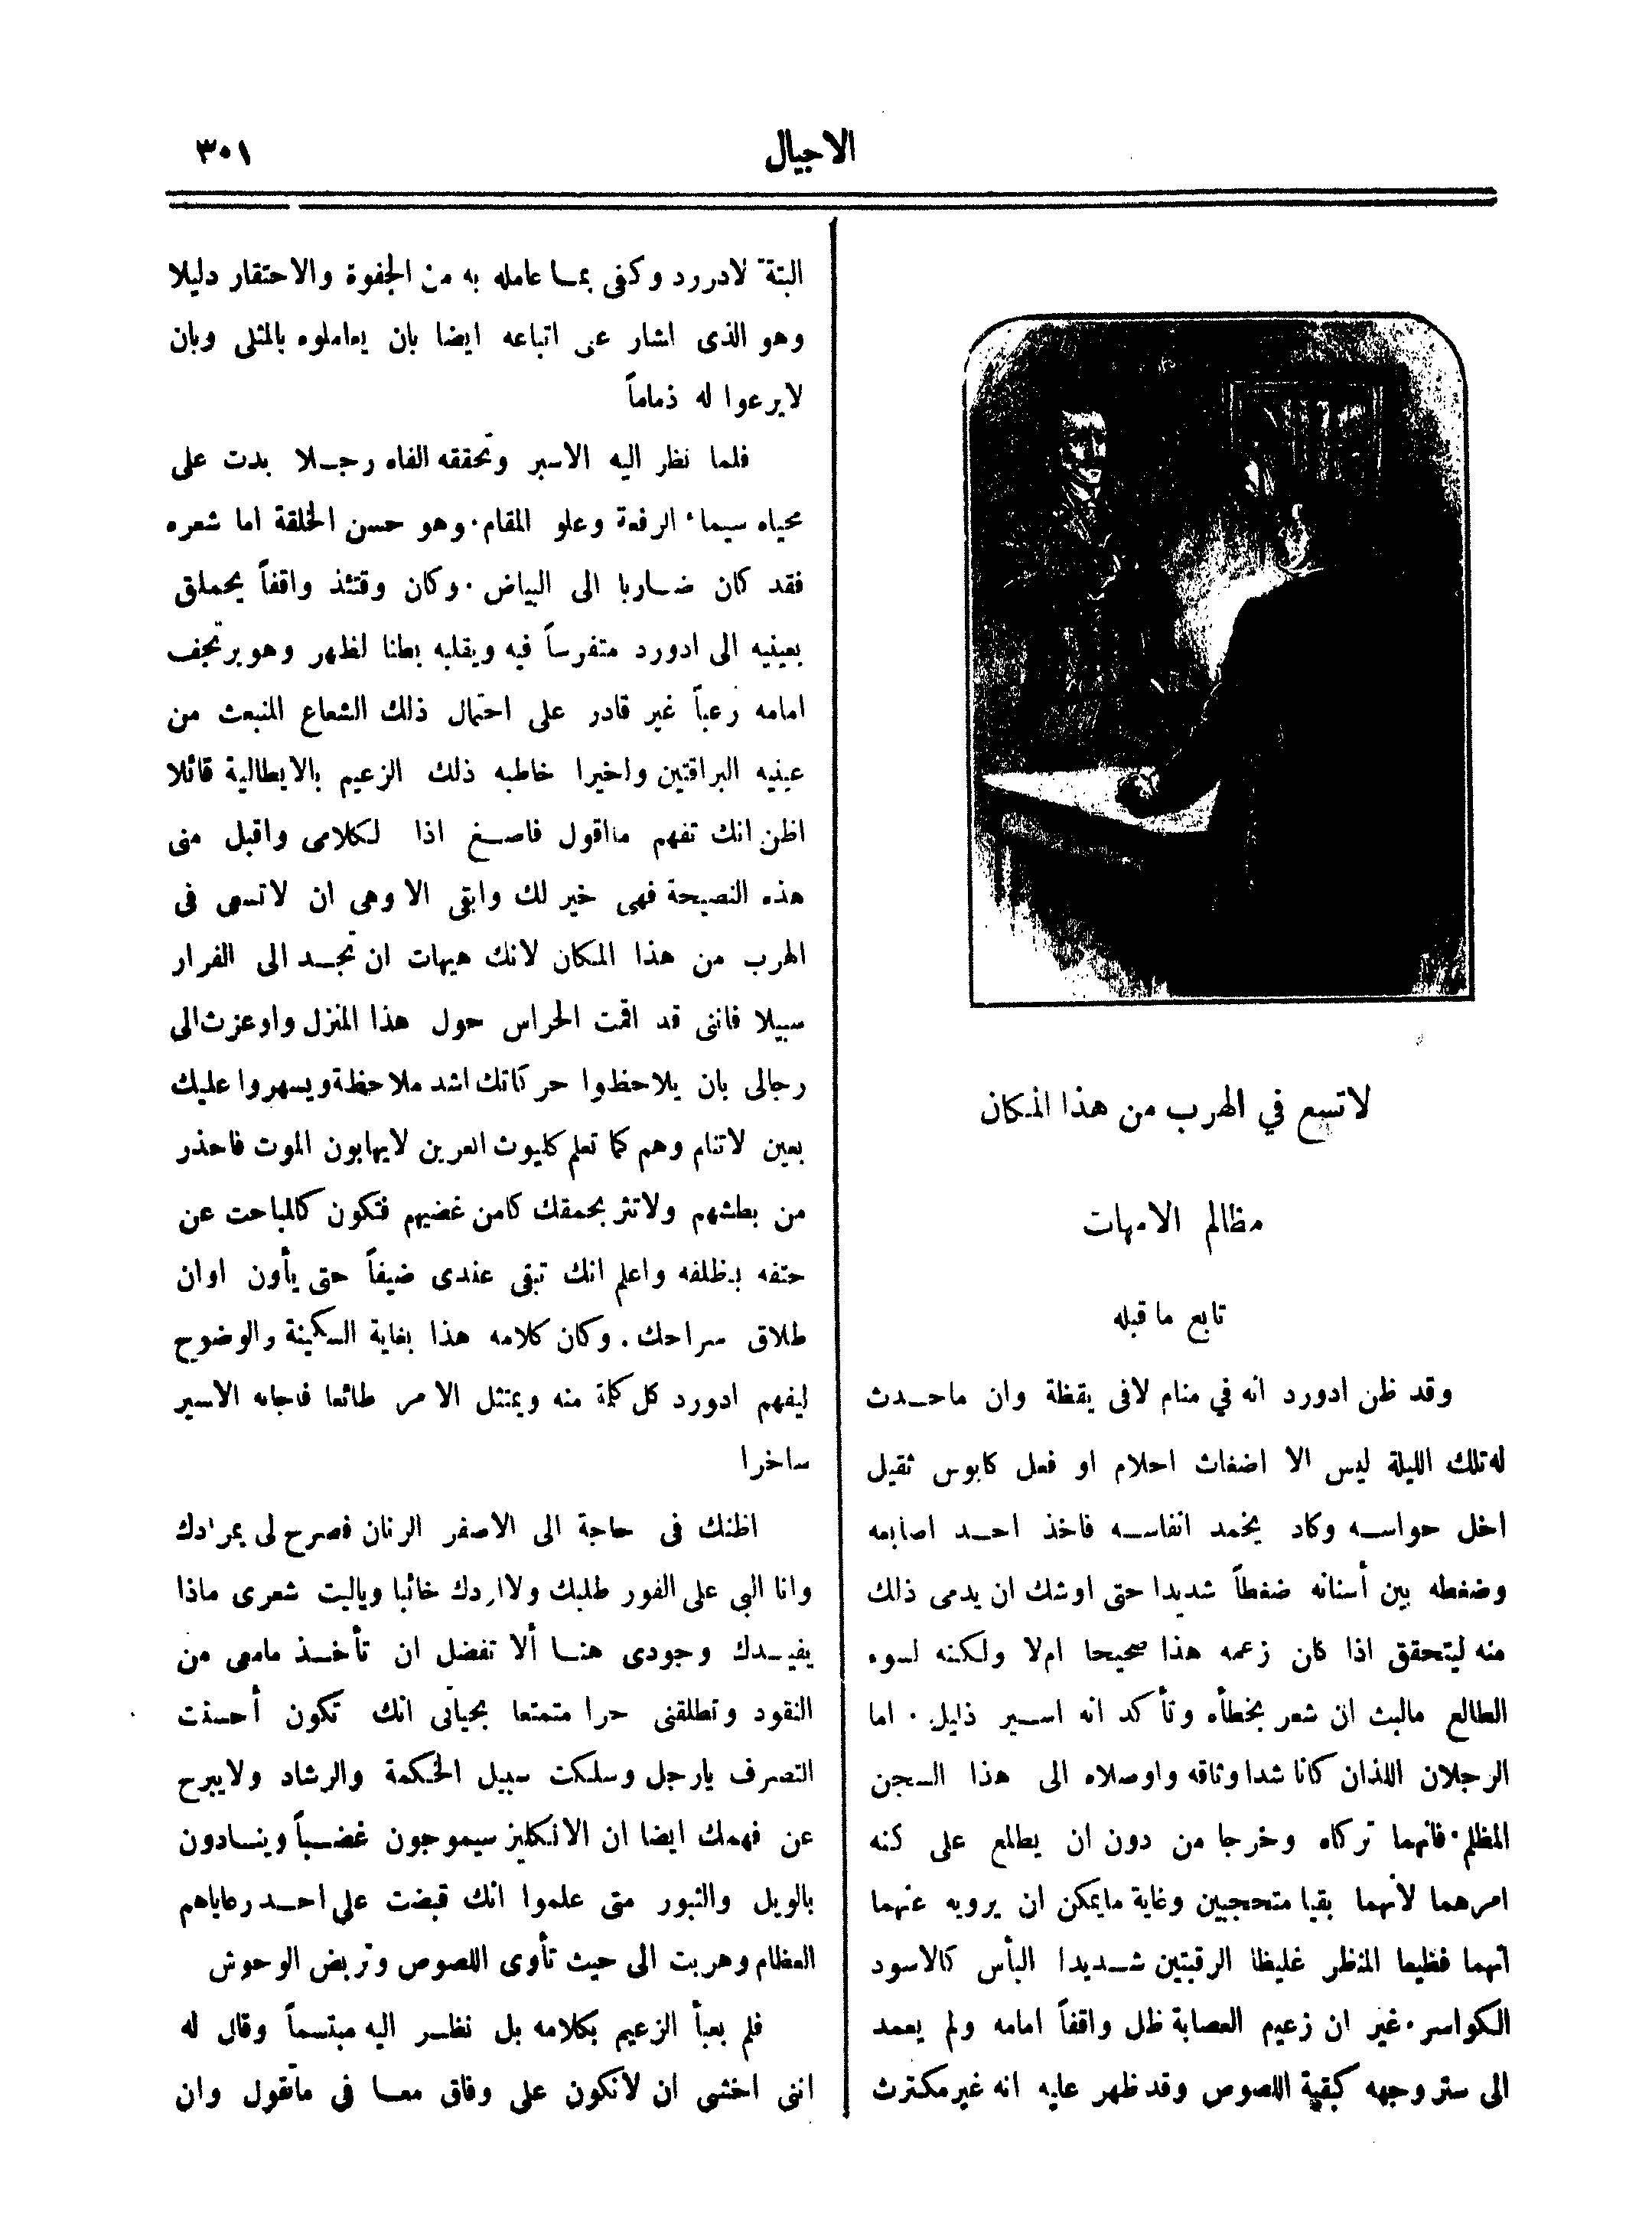 الاجيال
٣٠١
لاتسع في الهرب من هذا المكان
مظالم الامهات
تابع ما قبله
وقد ظن ادورد انه في منام لافى يقظة وان ماحدث
له تلك الليلة ليس الا اضغاث احلام او فعل كابوس ثقيل
اخل حواسه وكاد يخمد انفاسه فاخذ احد اصابعه
وضغطه بين أسنانه ضغطاً شديدا حتى اوشك ان يدمى ذلك
منه ليتحقق اذا كان زعمه هذا صحيحا ام لا ولكنه لسوء
الطالع مالبث ان شعر بخطأه وتأكد انه اسير ذليل . اما
الرجلان اللذان كانا شدا وثاقه واوصلاه الى هذا السجن
المظلم . فانهما تركاه وخرجا من دون ان يطلع على كنه
امرهما لأنهما بقيا متحجبين وغاية مايمكن ان يرويه عنهما
انهما فظيعا المنظر غليظا الرقبتين شديدا البأس كالاسود
الكواسر . غير ان زعيم العصابة ظل واقفاً امامه ولم يعمد
الى ستر وجهه كبقية اللصوص وقد ظهر عليه انه غير مكترث
البتة لادورد وكفى بما عامله به من الجفوة والاحتقار دليلا
وهو الذى اشار على اتباعه ايضا بان يعاملوه بالمثلى وبان
لايرعوا له ذماماً
فلما نظر اليه الاسير وتحققه الفاه رجلا بدت على
محياه سيماء الرفعة وعلو المقام . وهو حسن الخلقة اما شعره
فقد كان ضاربا الى البياض . وكان وقتئذ واقفاً يحملق
بعينيه الى ادورد متفرساً فيه ويقلبه بطنا لظهر وهو يرتجف
امامه رعباً غير قادر على احتمال ذلك الشعاع المنبعث من
عينيه البراقتين واخيرا خاطبه ذلك الزعيم بالايطالية قائلا
اظن انك تفهم مااقول فاصغ اذا لكلامى واقبل منى
هذه النصيحة فهى خير لك وابقى الا وهى ان لاتسعى فى
الهرب من هذا المكان لانك هيهات ان تجد الى الفرار
سبيلا فاننى قد اقمت الحراس حول هذا المنزل واوعزت الى
رجالى بان يلاحظوا حركاتك اشد ملاحظة ويسهروا عليك
بعين لاتنام وهم كما تعلم كليوث العرين لايهابون الموت فاحذر
من بطشهم ولاتثر بحمقك كامن غضبهم فتكون كالمباحت عن
حتفه بظلفه واعلم انك تبقى عندى ضيفاً حتى يأون اوان
طلاق سراحك . وكان كلامه هذا بغاية السكينة والوضوح
ليفهم ادورد كل كلمة منه ويمتثل الامر طائعا فاجابه الاسير
ساخرا
اظنك فى حاجة الى الاصفر الرنان فصرح لى بمرادك
وانا البي على الفور طلبك ولااردك خائبا وياليت شعرى ماذا
يفيدك وجودى هنا ألا تفضل ان تأخذ مامعى من
النقود وتطلقنى حرا متمتعا بحياتى انك تكون أحسنت
التصرف يارجل وسلكت سبيل الحكمة والرشاد ولايبرح
عن فهمك ايضا ان الانكليز سيموجون غضباً وينادون
بالويل والثبور متى علموا انك قبضت على احد رعاياهم
العظام وهربت الى حيث تأوى اللصوص وتربض الوحوش
فلم يعبأ الزعيم بكلامه بل نظر اليه مبتسماً وقال له
اننى اخشى ان لانكون على وفاق معا فى ماتقول وان